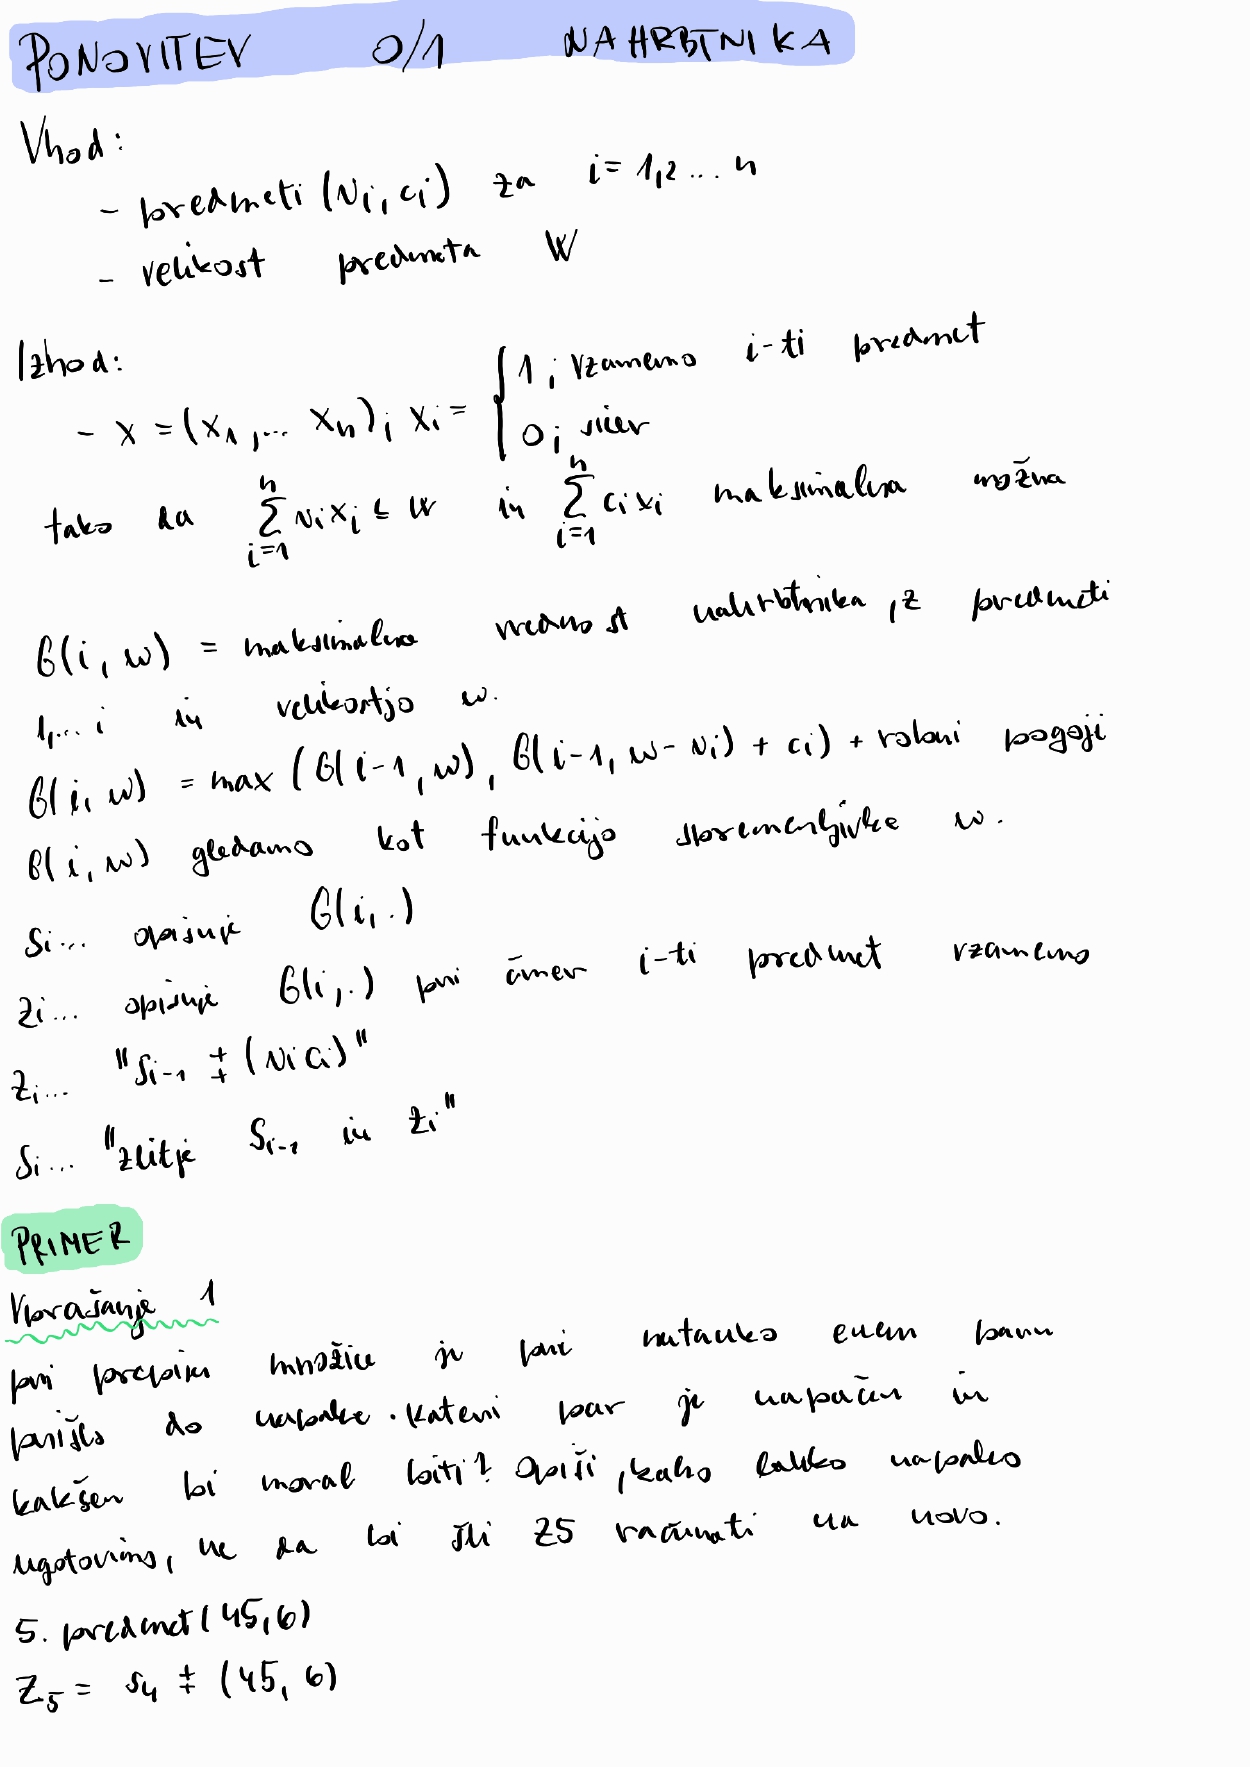 PONOVITEV 0/1 NAHRBTNIKA
Vhod:
- predmeti (vi, ci) za i = 1,2 ... n
- velikost predmeta W
Izhod:
- x = (x1, ... xn); xi = { 1; vzamemo i-ti predmet
0; sicer
tako da ∑_{i=1}^{n} vi xi ≤ W in ∑_{i=1}^{n} ci xi maksimalna možna
G(i, w) = maksimalna vrednost nahrbtnika, z predmeti
1,... i in velikostjo w.
G(i, w) = max (G(i-1, w), G(i-1, w - vi) + ci) + robni pogoji
G(i, w) gledamo kot funkcijo spremenljivke w.
Si... opisuje G(i, .)
Zi... opisuje G(i, .) pri čimer i-ti predmet vzamemo
Zi... "Si-1 ‡ (vi ci)"
Si... "zlitje Si-1 in Zi"
PRIMER
Vprašanje 1
pri prepisu množice je pri natanko enem paru
prišlo do napake. Kateri par je napačen in
kakšen bi moral biti? Opiši, kako lahko napako
ugotovimo, ne da bi šli Z5 računati na novo.
5. predmet (45, 6)
Z5 = S4 ‡ (45, 6)